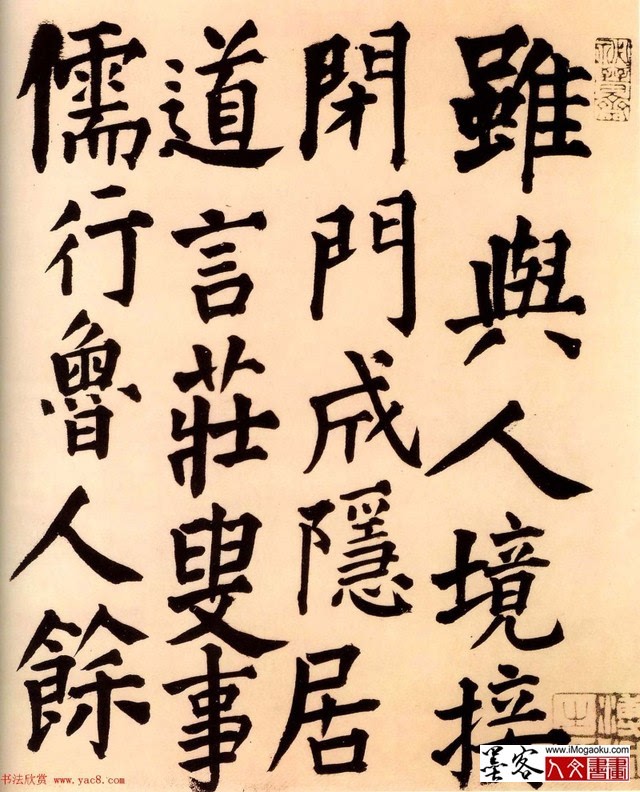 雖與人境接
閉門成隱居
道言莊叟事
儒行魯人餘
墨客 www.iMogaoku.com
人文書畫
书法欣赏 www.yac8.com